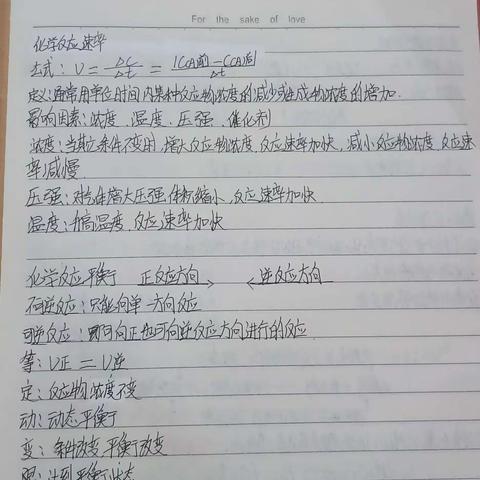 For the sake of love
化学反应速率
公式：υ = Δc/Δt = |C(A)前 - C(A)后|/Δt
定义：通常用单位时间内某种反应物浓度的减少或生成物浓度的增加.
影响因素：浓度、温度、压强、催化剂
浓度：当其它条件不变时，增大反应物浓度，反应速率加快，减小反应物浓度，反应速
率减慢.
压强：对气体增大压强，体积缩小，反应速率加快
温度：升高温度，反应速率加快
化学反应平衡 正反应方向→ ←逆反应方向
不可逆反应：只能向单一方向反应
可逆反应：即可向正也可向逆反应方向进行的反应.
等：υ正 = υ逆
定：反应物浓度不变
动：动态平衡
变：条件改变，平衡改变
限：达到平衡状态